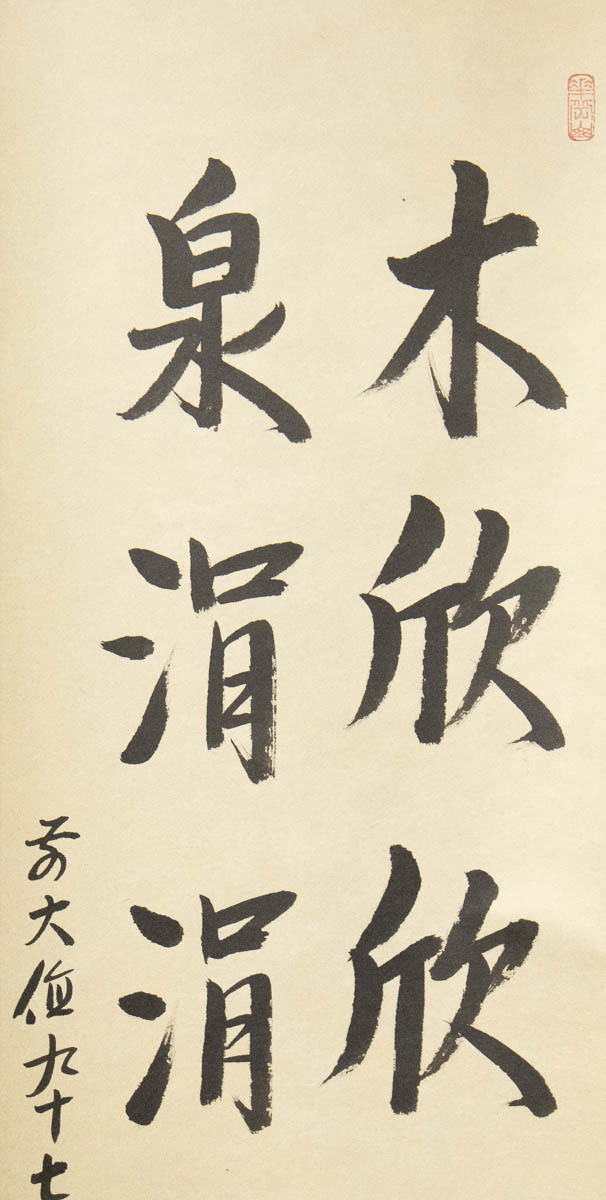 木欣欣
泉涓涓
前大徳九十七